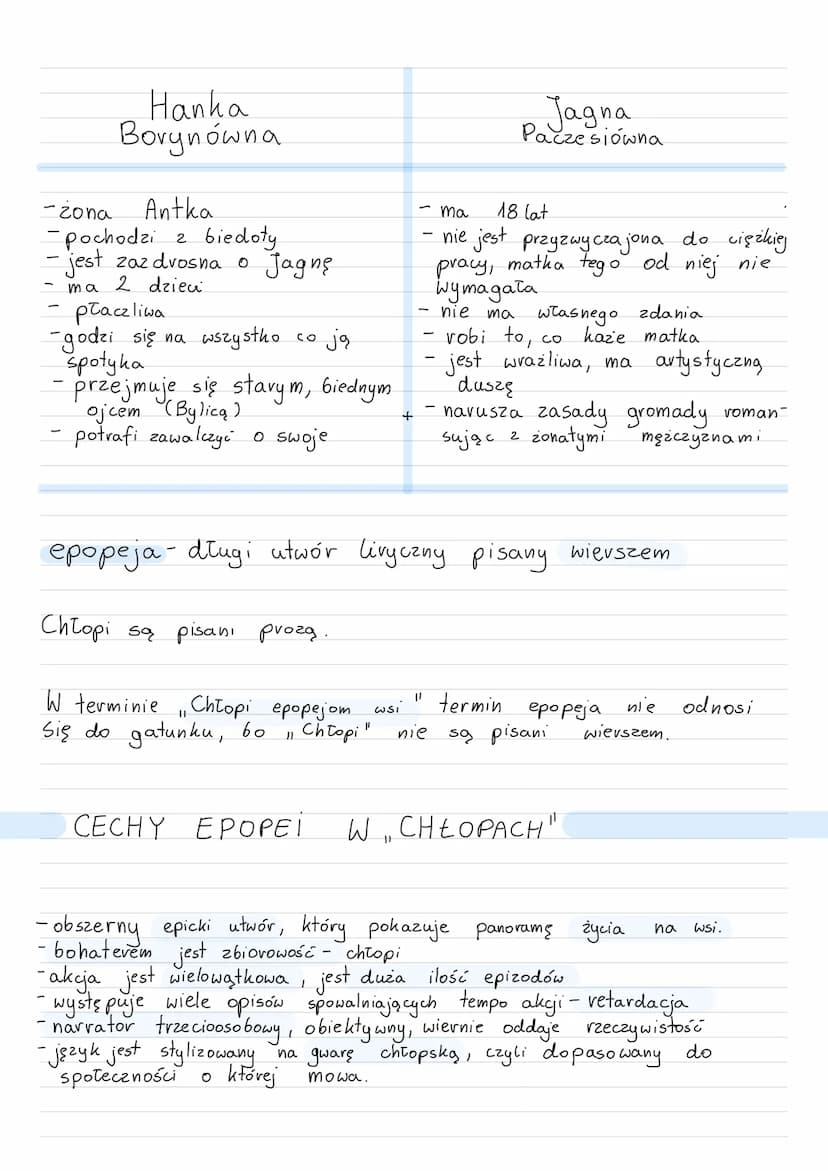 Hanka
Borynówna
-żona Antka
- pochodzi z biedoty
- jest zazdrosna o Jagnę
- ma 2 dzieci
- płaczliwa
- godzi się na wszystko co ją
spotyka
- przejmuje się starym, biednym
ojcem (Bylicą)
- potrafi zawalczyć o swoje
Jagna
Paczesiówna
- ma 18 lat
- nie jest przyzwyczajona do ciężkiej
pracy, matka tego od niej nie
wymagała
- nie ma własnego zdania
- robi to, co każe matka
- jest wrażliwa, ma artystyczną
duszę
+ - narusza zasady gromady roman-
sując z żonatymi mężczyznami
epopeja - długi utwór liryczny pisany wierszem
Chłopi są pisani prozą.
W terminie „Chłopi epopejom wsi" termin epopeja nie odnosi
się do gatunku, bo „Chłopi" nie są pisani wierszem.
CECHY EPOPEI W „CHŁOPACH"
- obszerny epicki utwór, który pokazuje panoramę życia na wsi.
- bohaterem jest zbiorowość - chłopi
- akcja jest wielowątkowa, jest duża ilość epizodów
- występuje wiele opisów spowalniających tempo akcji - retardacja
- narrator trzecioosobowy, obiektywny, wiernie oddaje rzeczywistość
- język jest stylizowany na gwarę chłopską, czyli dopasowany do
społeczności o której mowa.